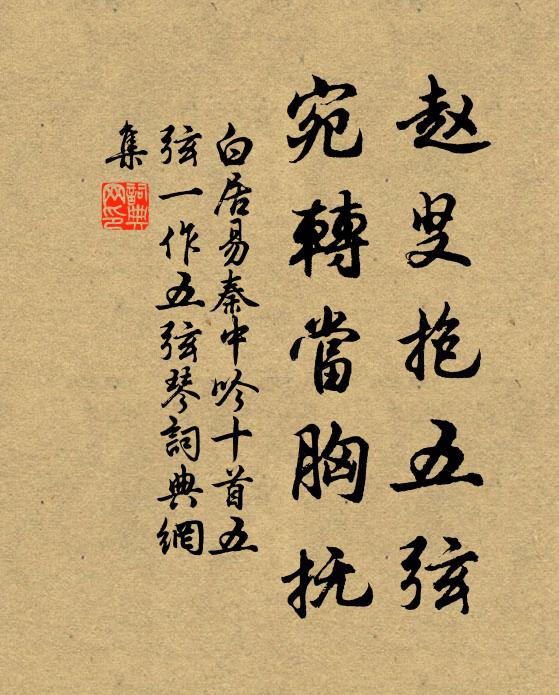 赵叟抱五弦
宛轉當胸抚
白居易秦中吟十首五
弦一作五弦琴詞典網
集
詞典
网印